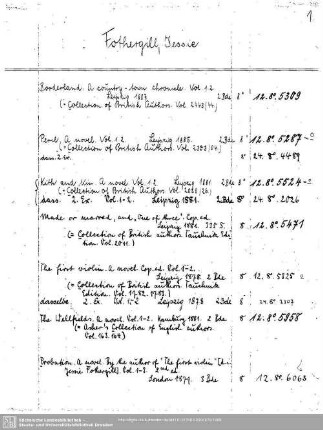 1
Fothergill, Jessie
Borderland. A country-town chronicle. Vol 1.2
Leipzig 1887. 2 Bde 8° 12.8°.5309
(= Collection of British Authors. Vol 2443/44)
Peril, A novel. Vol 1.2 Leipzig 1885. 2 Bde 8° 12.8°.5287
(= Collection of British Authors. Vol.
dass. 2. Ex. 8° 24.8°.4489
Kith and Kin. A novel. Vol 1.2. Leipzig 1881 2 Bde 8° 12.8°.5524
(= Collection of British Authors. Vol.
dass. 2. Ex. Vol. 1-2. Leipzig 1881. 2 Bde 8° 24.8°.2026
Made or marred, and "One of three". Cop. ed.
Leipzig 1881. 335 S. 8° 12.8°.5471
(= Collection of British authors. Tauchnitz Edi-
tion. Vol. 2011.)
The first violin. A novel. Cop. ed. Vol. 1-2.
Leipzig 1878. 2 Bde 8° 12.8°.5325
(= Collection of British authors. Tauchnitz
Edition. Vol. 1782. 1783.)
dasselbe 2. Ex. Vol. 1-2 Leipzig 1878 2 Bde 8° 24.8°.
The Wellfields. A novel. Vol. 1-2. Hamburg 1881. 2 Bde 8° 12.8°.5858
(= Asher's Collection of English authors.
Vol.
Probation. A novel. By the author of "The first violin"
Jessie Fothergill. Vol. 1-3. 2nd ed.
London 1879. 3 Bde 8° 12.8°.6063